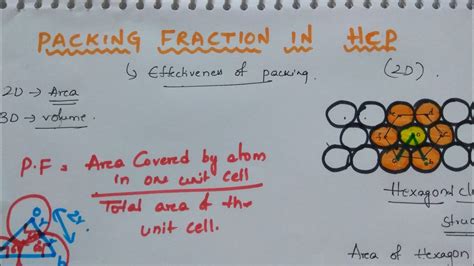 PACKING FRACTION IN HCP
↳ Effectiveness of packing.
(2D).
2D → Area
3D → volume.
P.F = Area Covered by atom
in one unit cell
Total area of the
unit cell.
Hexagonal cl
Struc
Area of Hexagon